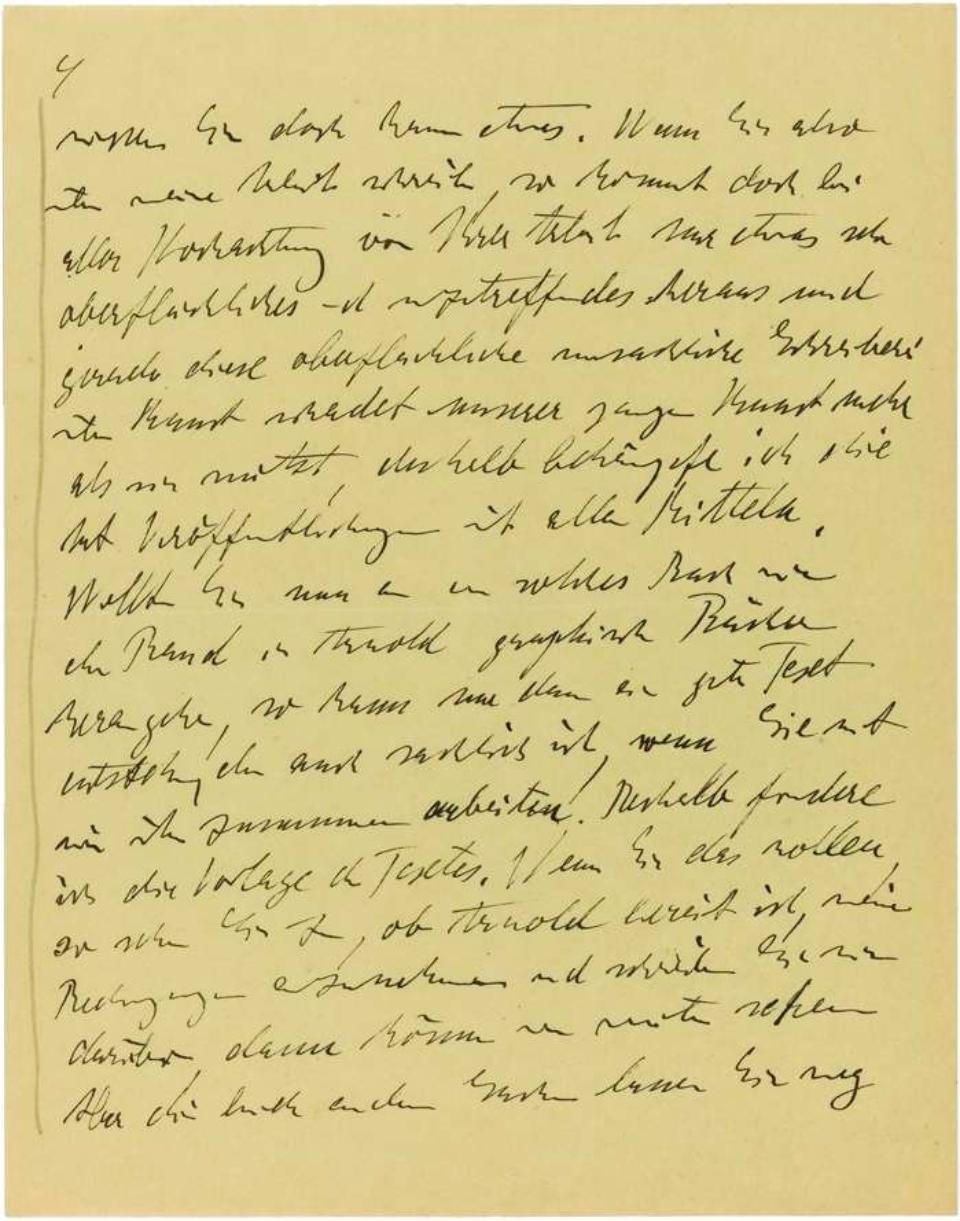 4
wissen Sie doch kaum etwas. Wenn Sie also
über meine Arbeit schreiben, so kommt doch bei
aller Hochachtung vor Ihrer Arbeit nur etwas sehr
oberflächliches und unzutreffendes heraus und
gerade diese oberflächliche unsachliche Schreiberei
über Kunst schadet unserer ganzen Kunst mehr
als sie nützt, deshalb bekämpfe ich
Veröffentlichungen mit allen Mitteln.
Wollten Sie nun an ein solches Buch wie
der Band der Arnold graphische Bücher
herangehen, so kann nur dann ein guter Text
entstehen, der auch sachlich ist, wenn Sie mit
mir zusammen arbeiten. Deshalb fordere
ich die Vorlage des Textes. Wenn Sie das wollen,
so sehen Sie zu, ob Arnold bereit ist, meine
Bedingungen anzunehmen und schreiben Sie mir
darüber, dann können wir weiter sehen
Aber die beiden anderen Sachen lassen Sie weg